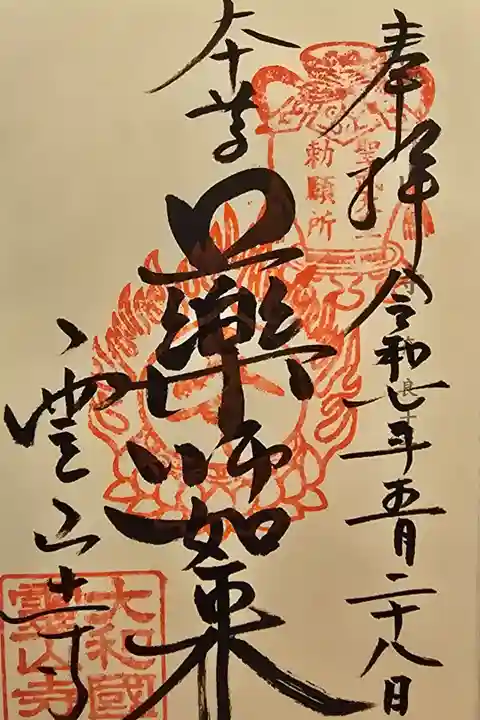 奉拝 令和七年五月二十八日
勅願所
本尊
薬師如来
霊山寺
大和國
靈山寺